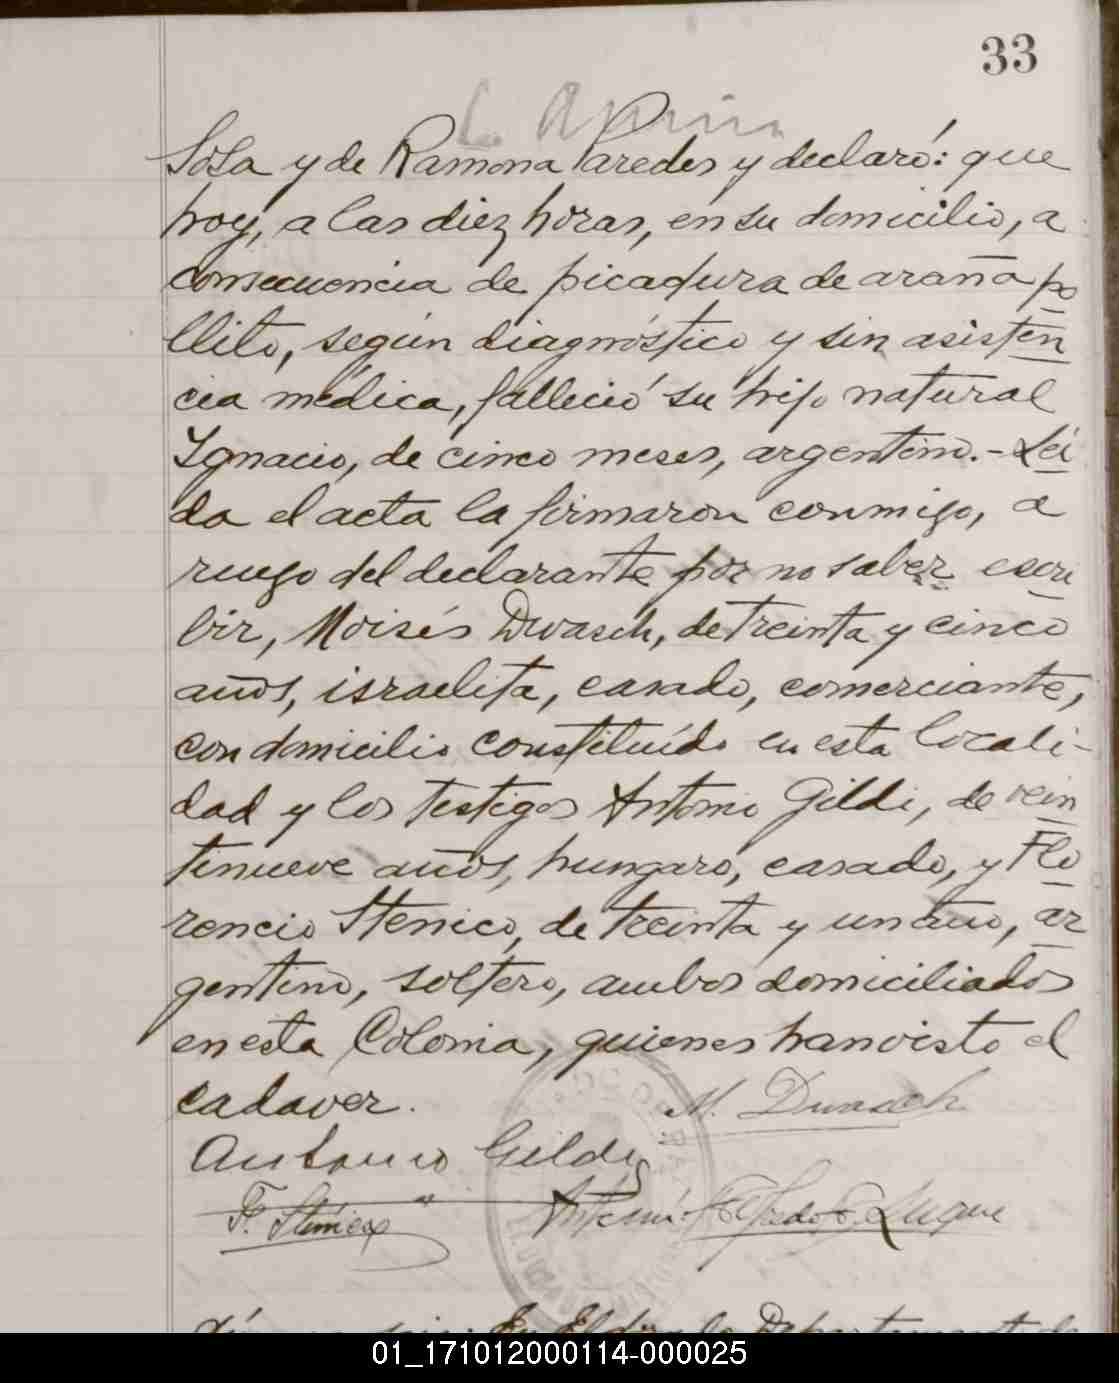 33
Sosa y de Ramona Paredes y declaró: que
hoy, a las diez horas, en su domicilio, a
consecuencia de picadura de araña po
llito, según diagnóstico y sin asisten
cia médica, falleció su hijo natural
Ygnacio, de cinco meses, argentino.- Leí
da el acta la firmaron conmigo, a
ruego del declarante por no saber escri
bir, Moisés Dwasch, de treinta y cinco
años, israelita, casado, comerciante,
con domicilio constituído en esta locali-
dad y los testigos Antonio Gildi, de vein
tinueve años, hungaro, casado, y Flo
rencio Stenico, de treinta y un año, ar
gentino, soltero, ambos domiciliados
en esta Colonia, quienes han visto el
cadaver.
M. Dwasch
Antonio Gildy
F. Stenico
Luque
01_171012000114-000025